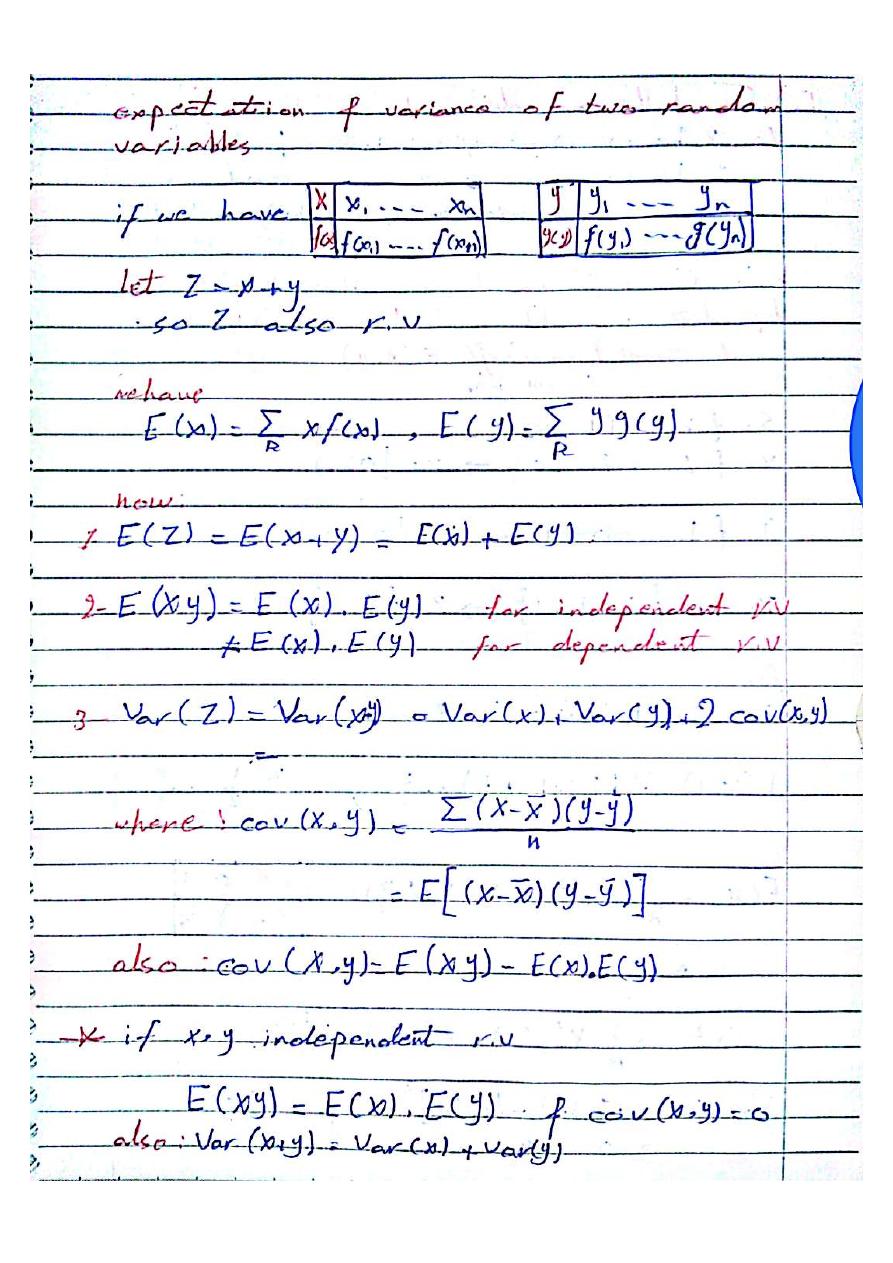 expectation & variance of two random
variables :
if we have
X x₁ ---- xn
f(x) f(x₁) ---- f(xn)
y y₁ ---- yn
g(y) f(y₁) ---- g(yn)
let Z = x+y
so Z also r.v
we have
E(x) = Σ_R x f(x) , E(y) = Σ_R y g(y)
now:
1- E(Z) = E(x+y) = E(x) + E(y)
2- E(xy) = E(x) . E(y) for independent r.v
≠ E(x) . E(y) for dependent r.v
3- Var(Z) = Var(x+y) = Var(x) + Var(y) + 2 cov(x,y)
=
where : cov(x,y) = Σ(x-x̄)(y-ȳ) / n
= E[(x-x̄)(y-ȳ)]
also : cov(x,y) = E(xy) - E(x).E(y)
-X if x,y independent r.v
E(xy) = E(x) . E(y) & cov(x,y) = 0
also : Var(x+y) = Var(x) + Var(y)